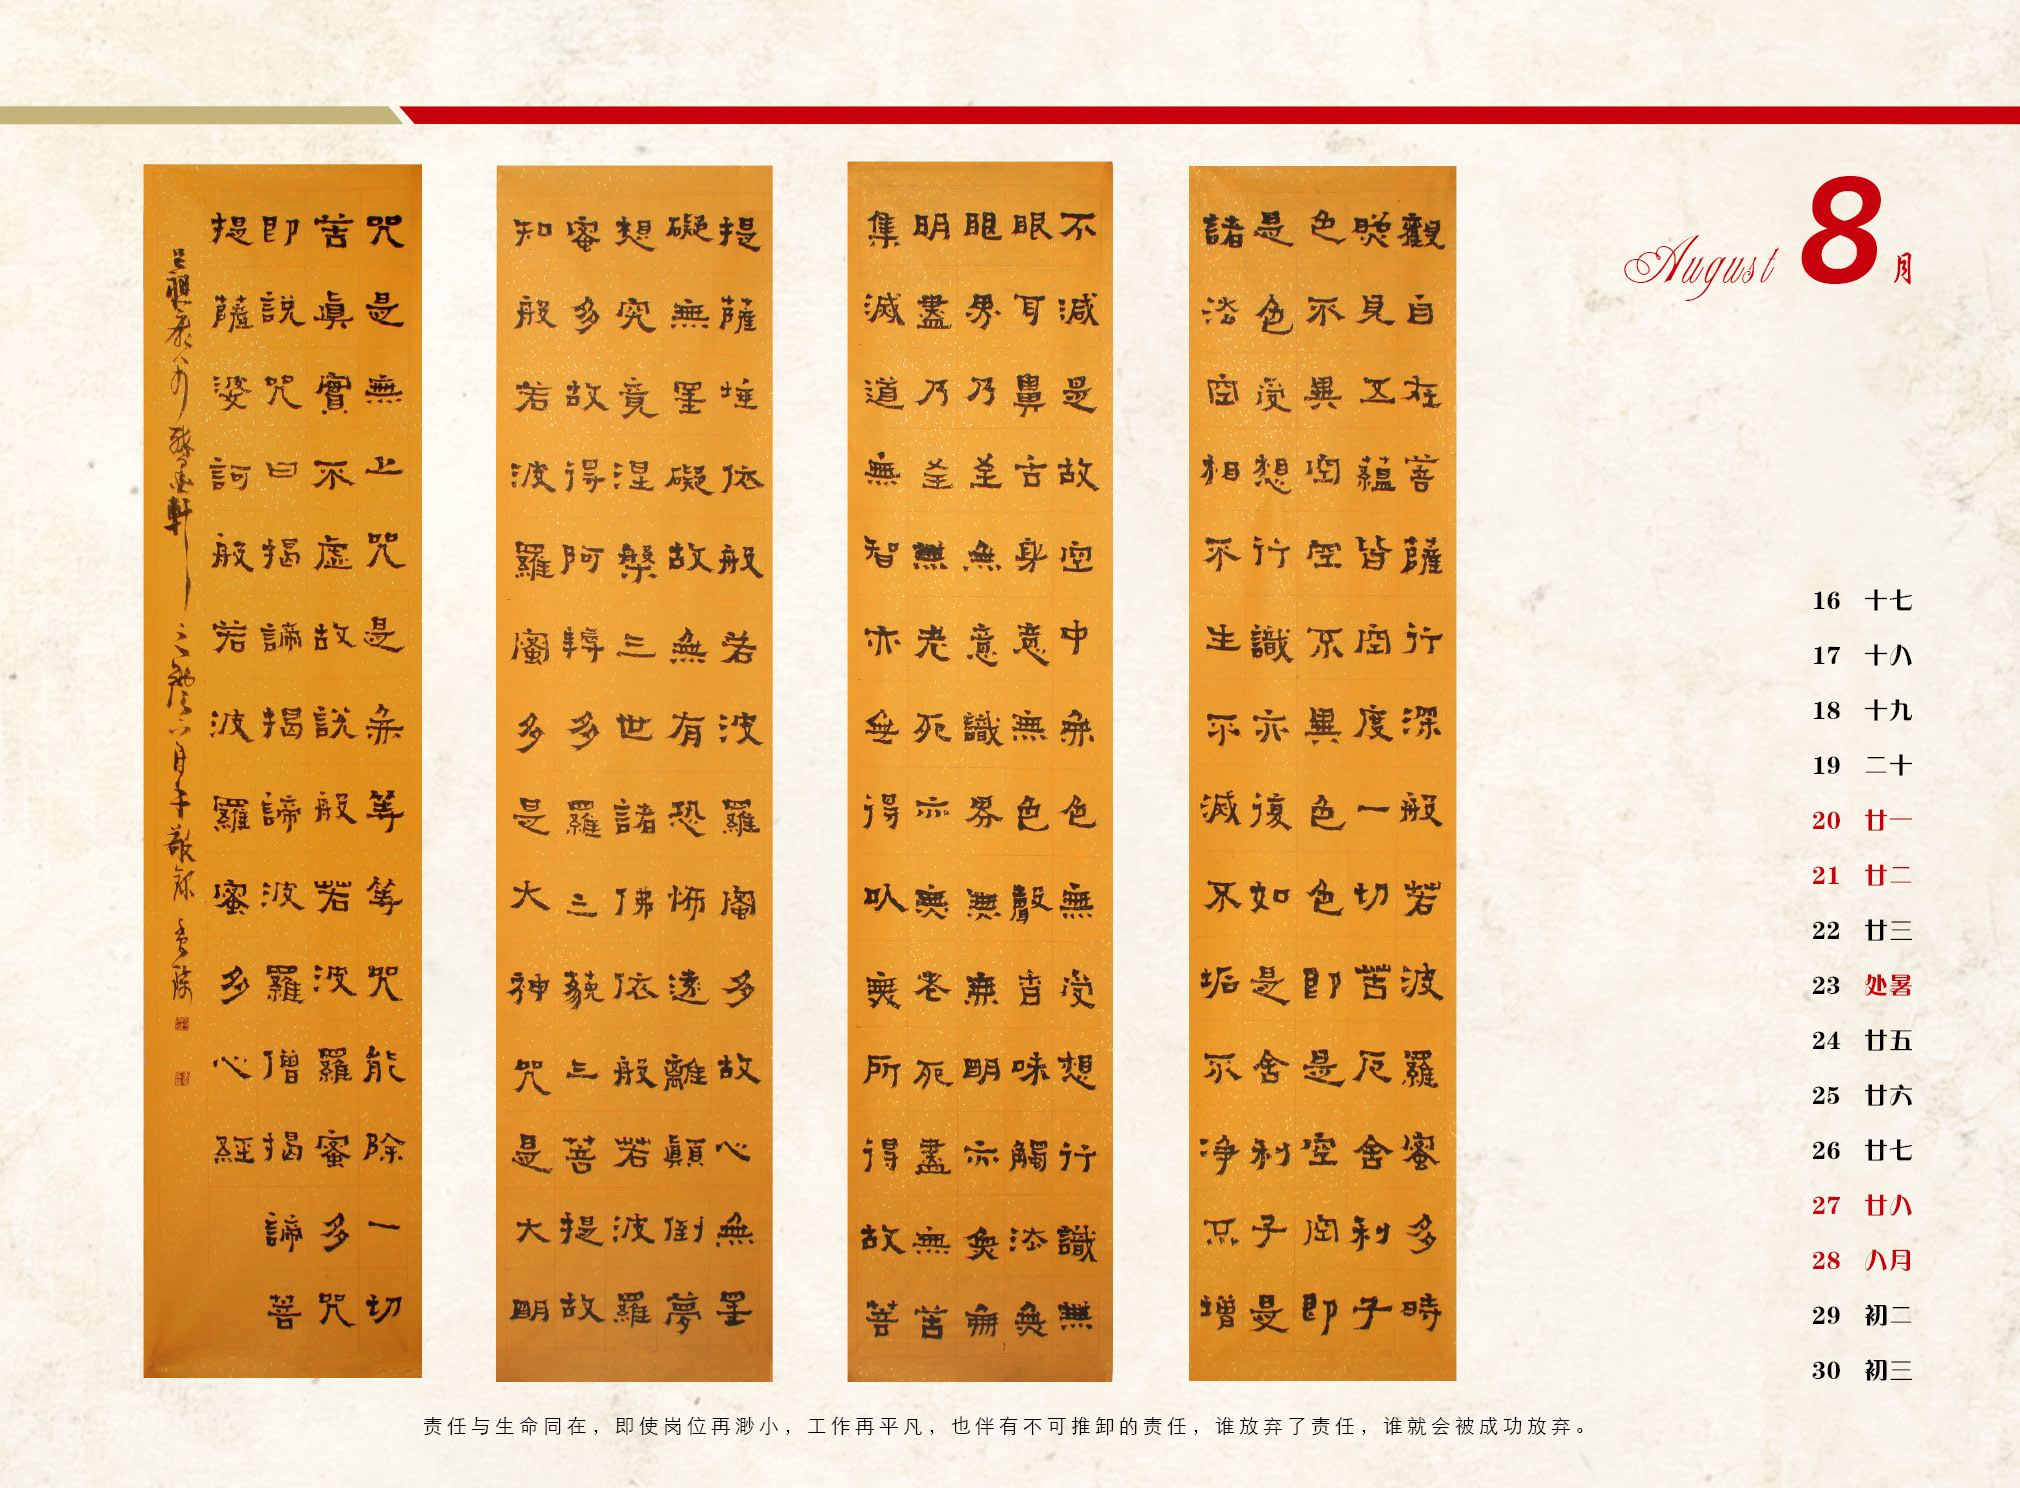 August 8月
觀自在菩薩行深般若波羅蜜多時
照見五蘊皆空度一切苦厄舍利子
色不異空空不異色色即是空空即
是色受想行識亦復如是舍利子是
諸法空相不生不滅不垢不淨不增
不減是故空中無色無受想行識無
眼耳鼻舌身意無色聲香味觸法無
眼界乃至無意識界無無明亦無無
明盡乃至無老死亦無老死盡無苦
集滅道無智亦無得以無所得故菩
提薩埵依般若波羅蜜多故心無罣
礙無罣礙故無有恐怖遠離顛倒夢
想究竟涅槃三世諸佛依般若波羅
蜜多故得阿耨多羅三藐三菩提故
知般若波羅蜜多是大神咒是大明
咒是無上咒是無等等咒能除一切
苦眞實不虛故說般若波羅蜜多咒
即說咒曰揭諦揭諦波羅僧揭諦菩
提薩婆訶般若波羅蜜多心經
16 十七
17 十八
18 十九
19 二十
20 廿一
21 廿二
22 廿三
23 处暑
24 廿五
25 廿六
26 廿七
27 廿八
28 八月
29 初二
30 初三
责任与生命同在，即使岗位再渺小，工作再平凡，也伴有不可推卸的责任，谁放弃了责任，谁就会被成功放弃。